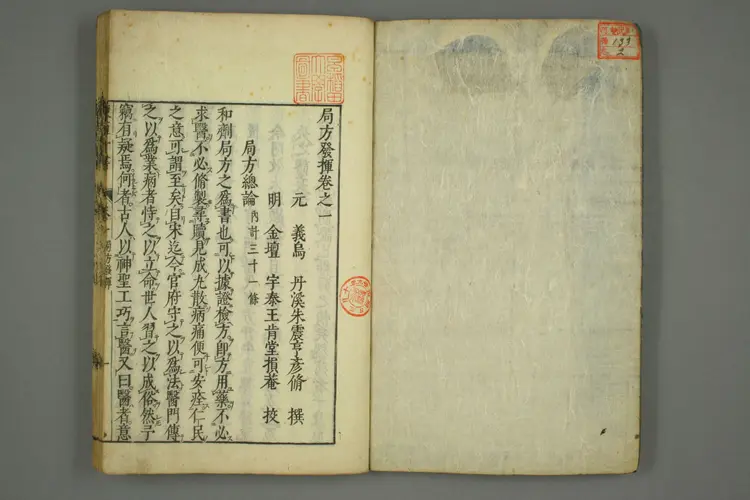 局方發揮卷之一
元 義烏 丹溪朱震亨彥脩 撰
明 金壇 宇泰王肯堂損菴 校
局方總論 內計三十一條
和劑局方之爲書也可以據證檢方卽方用藥不必
求醫不必脩製尋贖見成丸散病痛便可安痊仁民
之意可謂至矣自宋迄今官府守之以爲法醫門傳
之以爲業病者恃之以立命世人習之以成俗然予
竊有疑焉何者古人以神聖工巧言醫又曰醫者意